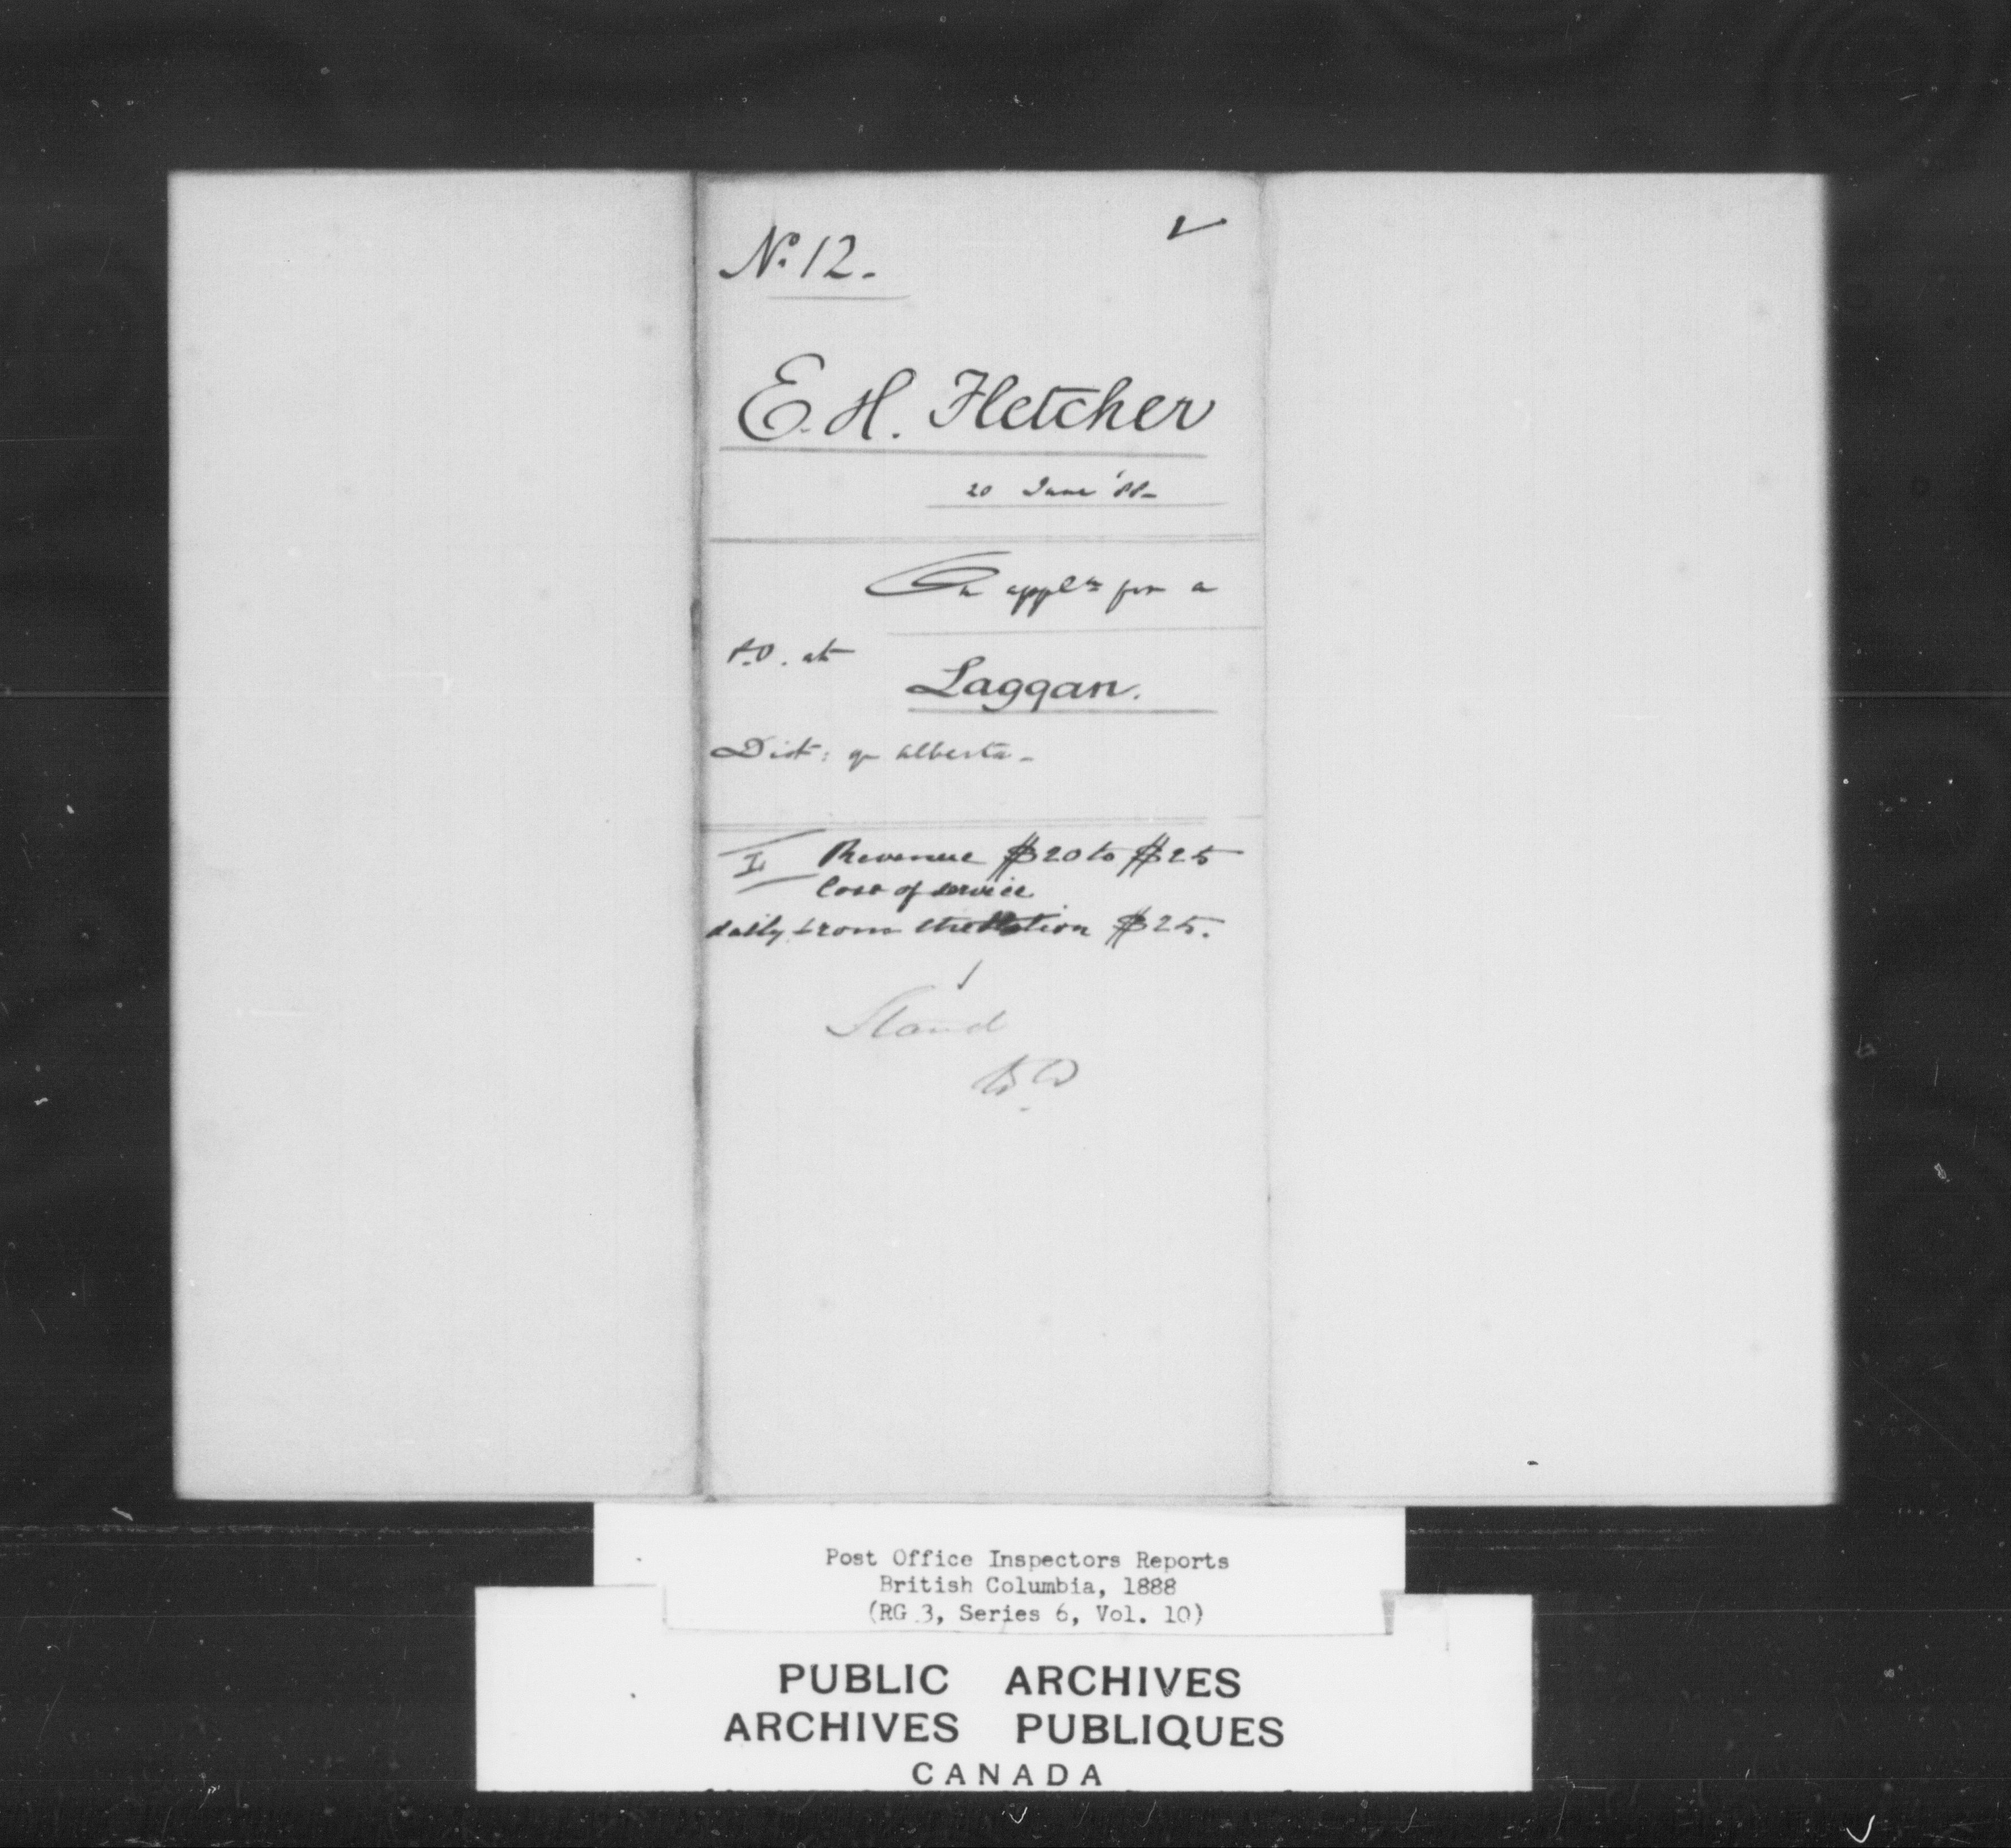 No. 12.
E. H. Fletcher
20 June '88
On appl.n for a
P.O. at
Laggan.
Dist: of Alberta
I Revenue $20 to $25
Cost of service
daily from the Station $25.
Stand
Post Office Inspectors Reports
British Columbia, 1888
(RG 3, Series 6, Vol. 10)
PUBLIC ARCHIVES
ARCHIVES PUBLIQUES
CANADA